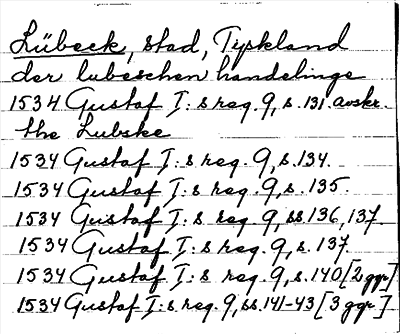 Lübeck, stad, Tyskland
der lubeschen handelinge
1534 Gustaf I:s reg. 9, s. 131 avskr.
the Lubske
1534 Gustaf I:s reg. 9, s. 134.
1534 Gustaf I:s reg. 9, s. 135.
1534 Gustaf I:s reg. 9, ss 136, 137.
1534 Gustaf I:s reg. 9, s. 137.
1534 Gustaf I:s reg. 9, s. 140 [2 ggr]
1534 Gustaf I:s reg. 9, ss. 141-43 [3 ggr]